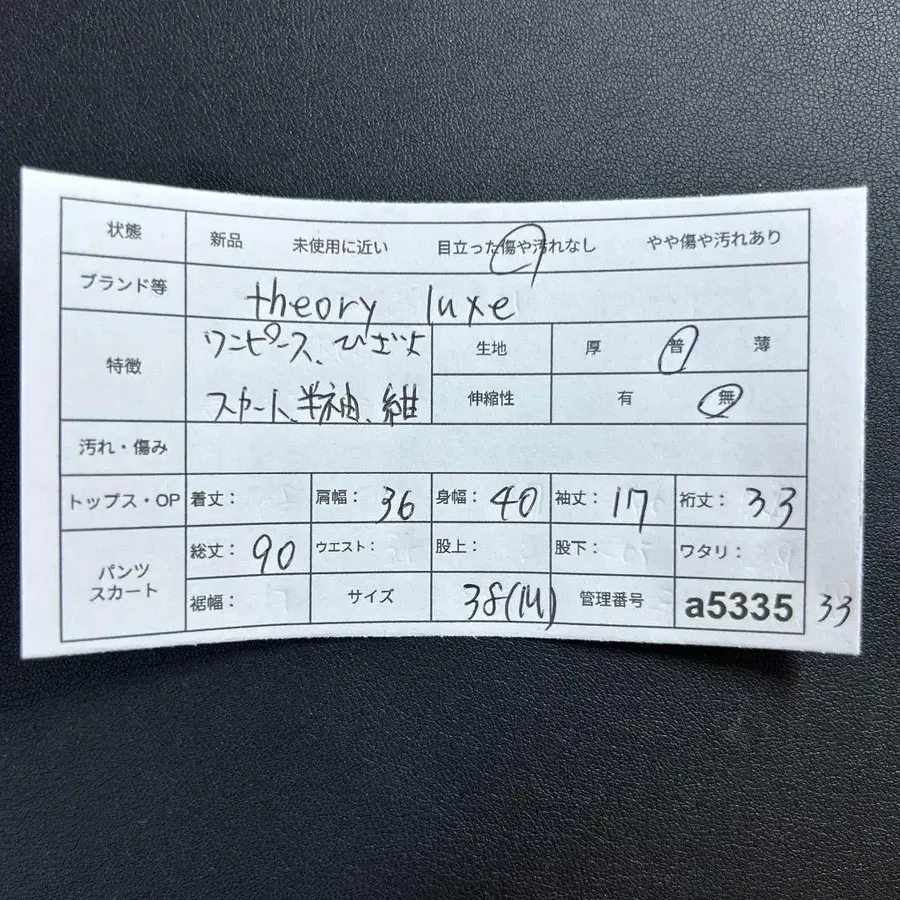 状態 新品 未使用に近い 目立った傷や汚れなし やや傷や汚れあり
ブランド等 theory luxe
特徴 ワンピース、ひざ丈
スカート、半袖、紺
生地 厚 普 薄
伸縮性 有 無
汚れ・傷み
トップス・OP 着丈: 肩幅: 36 身幅: 40 袖丈: 17 裄丈: 33
パンツ スカート 総丈: 90 ウエスト: 股上: 股下: ワタリ:
裾幅: サイズ 38(M) 管理番号 a5335 33